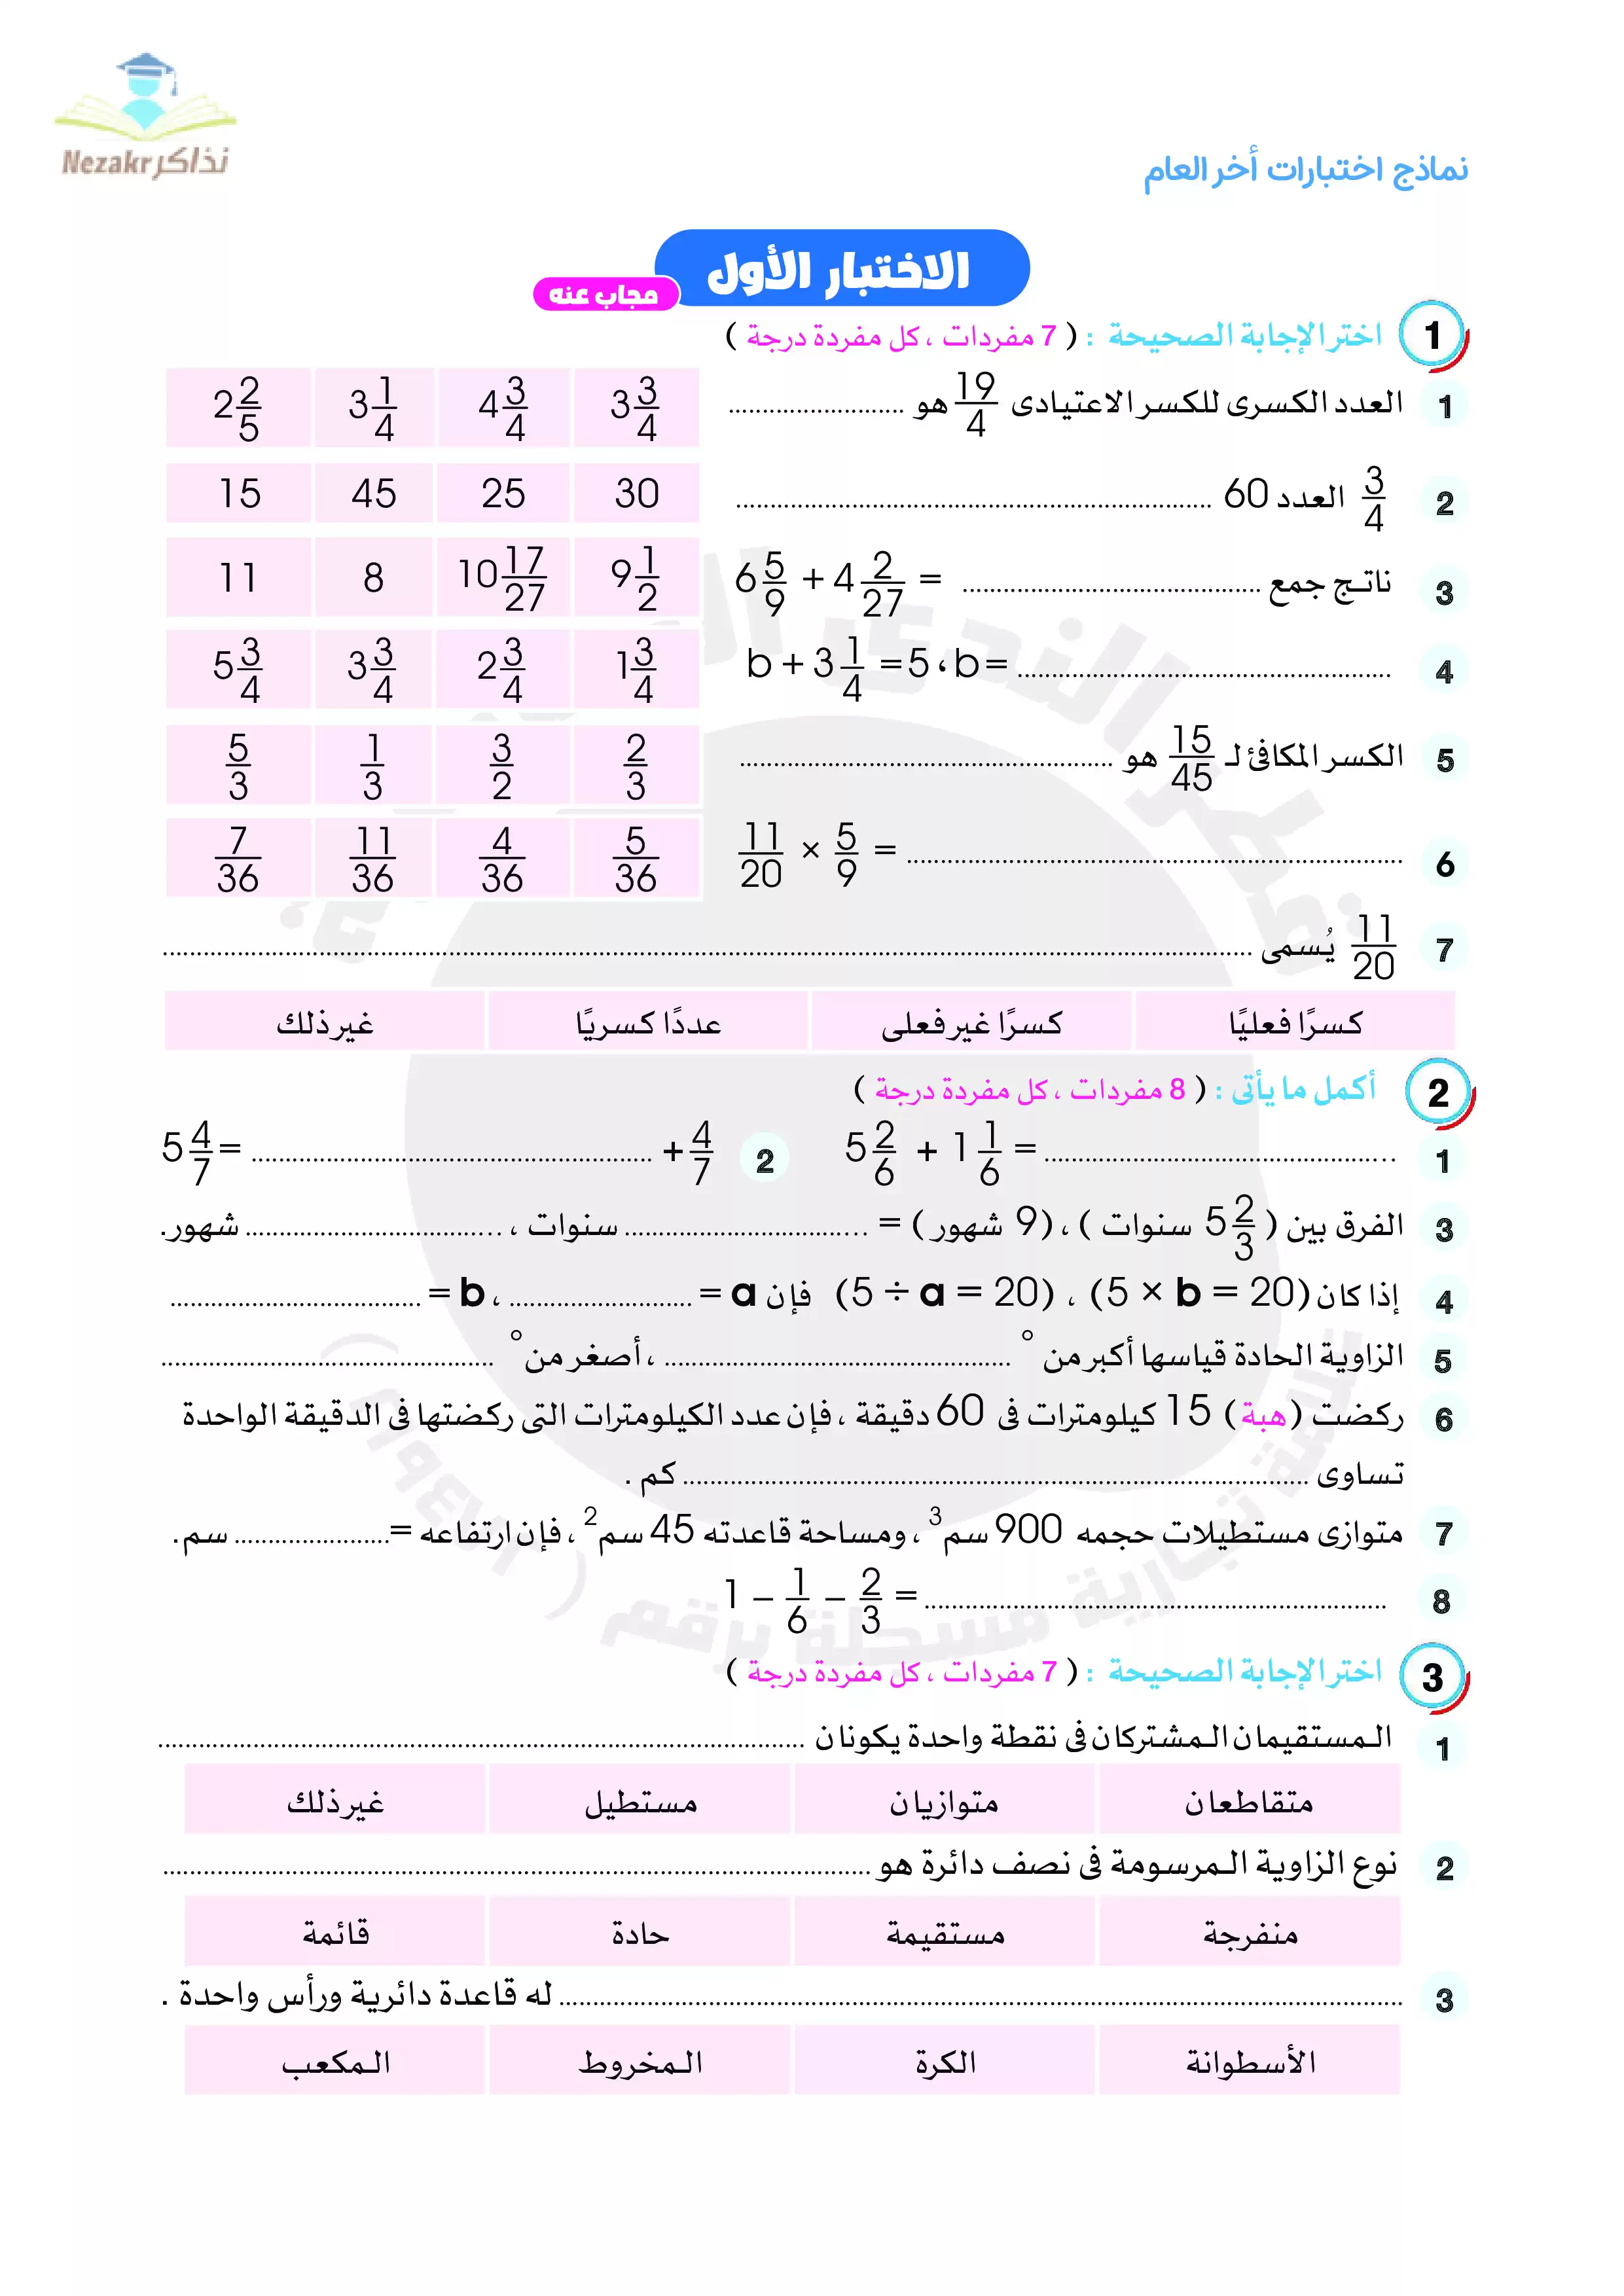 نذاكر Nezakr
نماذج اختبارات أخر العام
الاختبار الأول
مجاب عنه
1 اختر الإجابة الصحيحة : ( 7 مفردات ، كل مفردة درجة )
1 العدد الكسرى للكسر الاعتيادى 19/4 هو ..........................
3 3/4 4 3/4 3 1/4 2 2/5
2 3/4 العدد 60 ......................................................................
30 25 45 15
3 ناتج جمع ............................................ = 6 5/9 + 4 2/27
9 1/2 10 17/27 8 11
4 b + 3 1/4 = 5 ، b = .......................................................
1 3/4 2 3/4 3 3/4 5 3/4
5 الكسر المكافئ لـ 15/45 هو .......................................................
2/3 3/2 1/3 5/3
6 11/20 × 5/9 = .........................................................................
5/36 4/36 11/36 7/36
7 11/20 يُسمى ................................................................................................................................................................
كسرًا فعليًا كسرًا غير فعلى عددًا كسريًا غير ذلك
2 أكمل ما يأتى : ( 8 مفردات ، كل مفردة درجة )
1 5 2/6 + 1 1/6 = ....................................................
2 5 4/7 = ........................................................... + 4/7
3 الفرق بين ( 5 2/3 سنوات ) ، (9 شهور ) = .................................... سنوات ، ...................................... شهور.
4 إذا كان (5 × b = 20) ، (5 ÷ a = 20) فإن a = ........................... ، b = .....................................
5 الزاوية الحادة قياسها أكبر من ° ................................................... ، أصغر من ° .................................................
6 ركضت (هبة) 15 كيلومترات فى 60 دقيقة ، فإن عدد الكيلومترات التى ركضتها فى الدقيقة الواحدة
تساوى ............................................................................................ كم .
7 متوازى مستطيلات حجمه 900 سم3 ، ومساحة قاعدته 45 سم2 ، فإن ارتفاعه = ....................... سم.
8 1 – 1/6 – 2/3 = ....................................................................
3 اختر الإجابة الصحيحة : ( 7 مفردات ، كل مفردة درجة )
1 الـمستقيمان الـمشتركان فى نقطة واحدة يكونان ...............................................................................................
متقاطعان متوازيان مستطيل غير ذلك
2 نوع الزاوية الـمرسومة فى نصف دائرة هو ........................................................................................................
منفرجة مستقيمة حادة قائمة
3 ............................................................................................................................ له قاعدة دائرية ورأس واحدة .
الأسطوانة الكرة الـمخروط الـمكعب